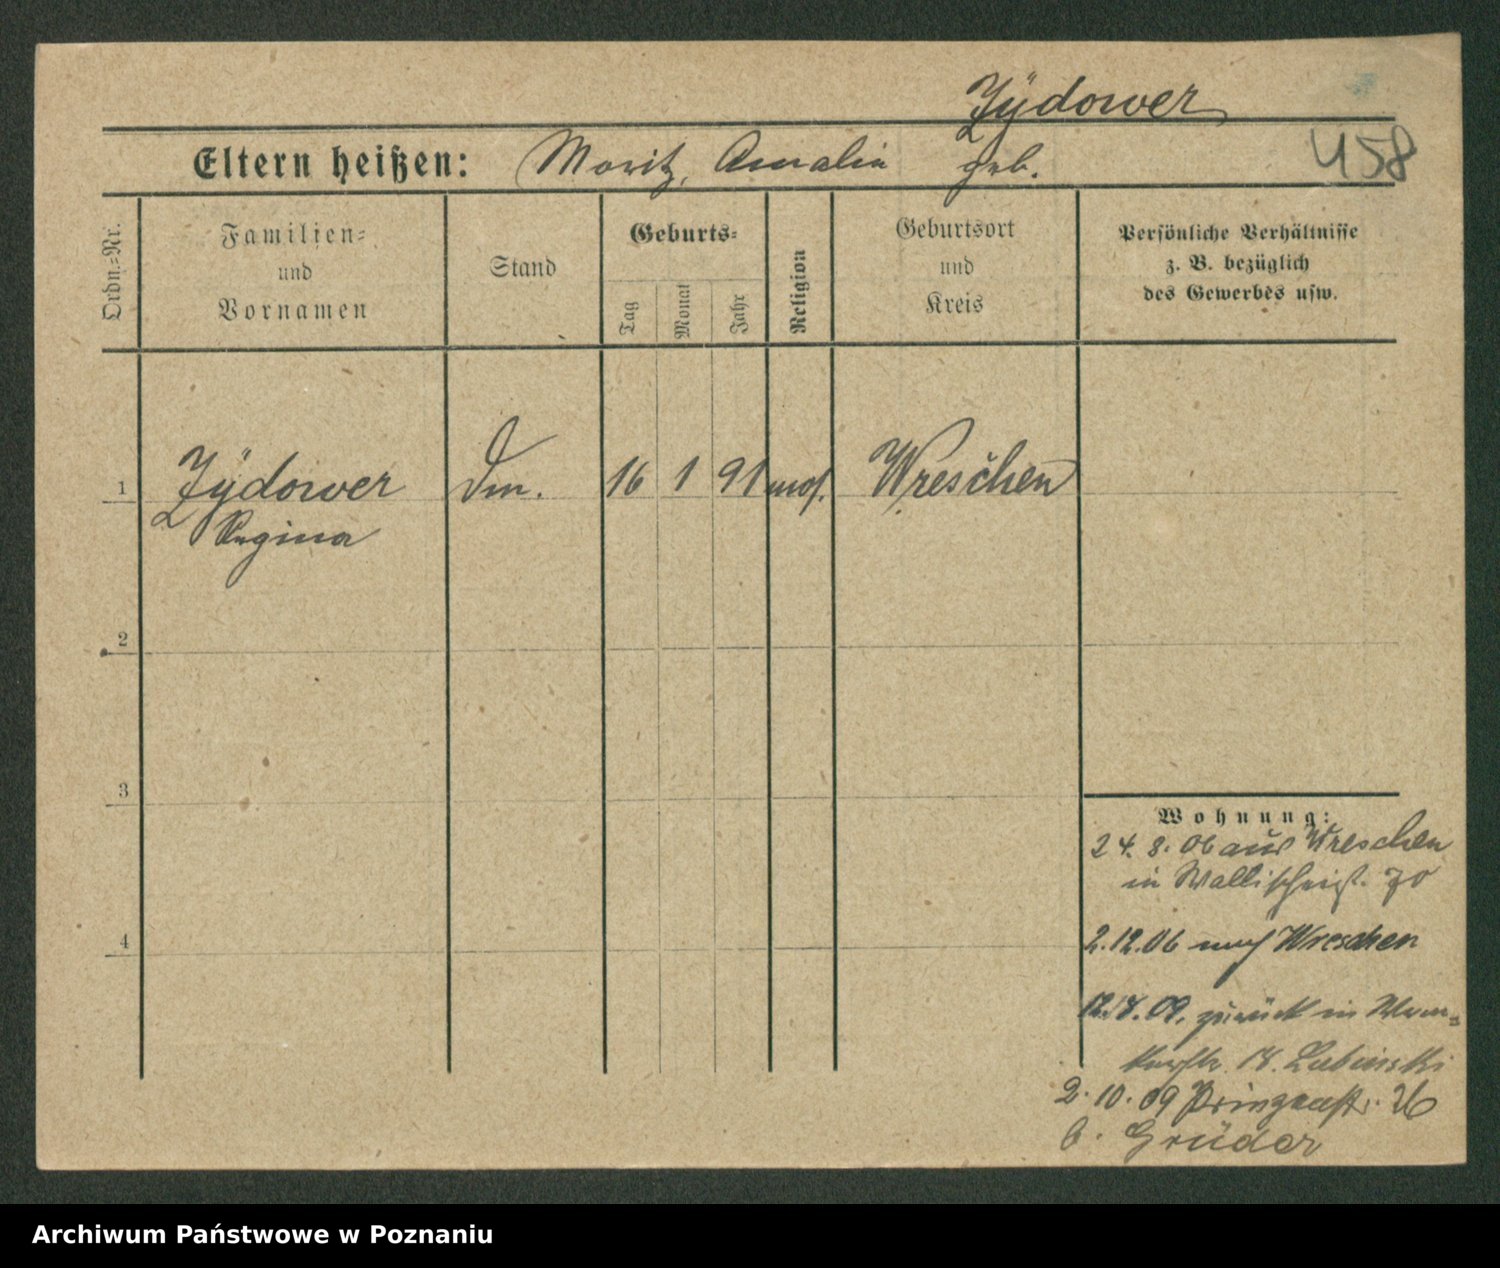 Zÿdower
Eltern heißen: Moritz, Amalie geb.
458
Ordn.=Nr.
Familien=
und
Vornamen
Stand
Geburts=
Tag
Monat
Jahr
Religion
Geburtsort
und
Kreis
Persönliche Verhältnisse
z. B. bezüglich
des Gewerbes usw.
1 Zÿdower 16 1 91 mos. Wreschen
Regina
2
3
4
Wohnung:
24. 8. 06 aus Wreschen
in Wallischeist. 70
2.12.06 nach Wreschen
09. zurück in
18. Lubinski
2. 10. 09 Prinzenstr. 26
b. Grüder